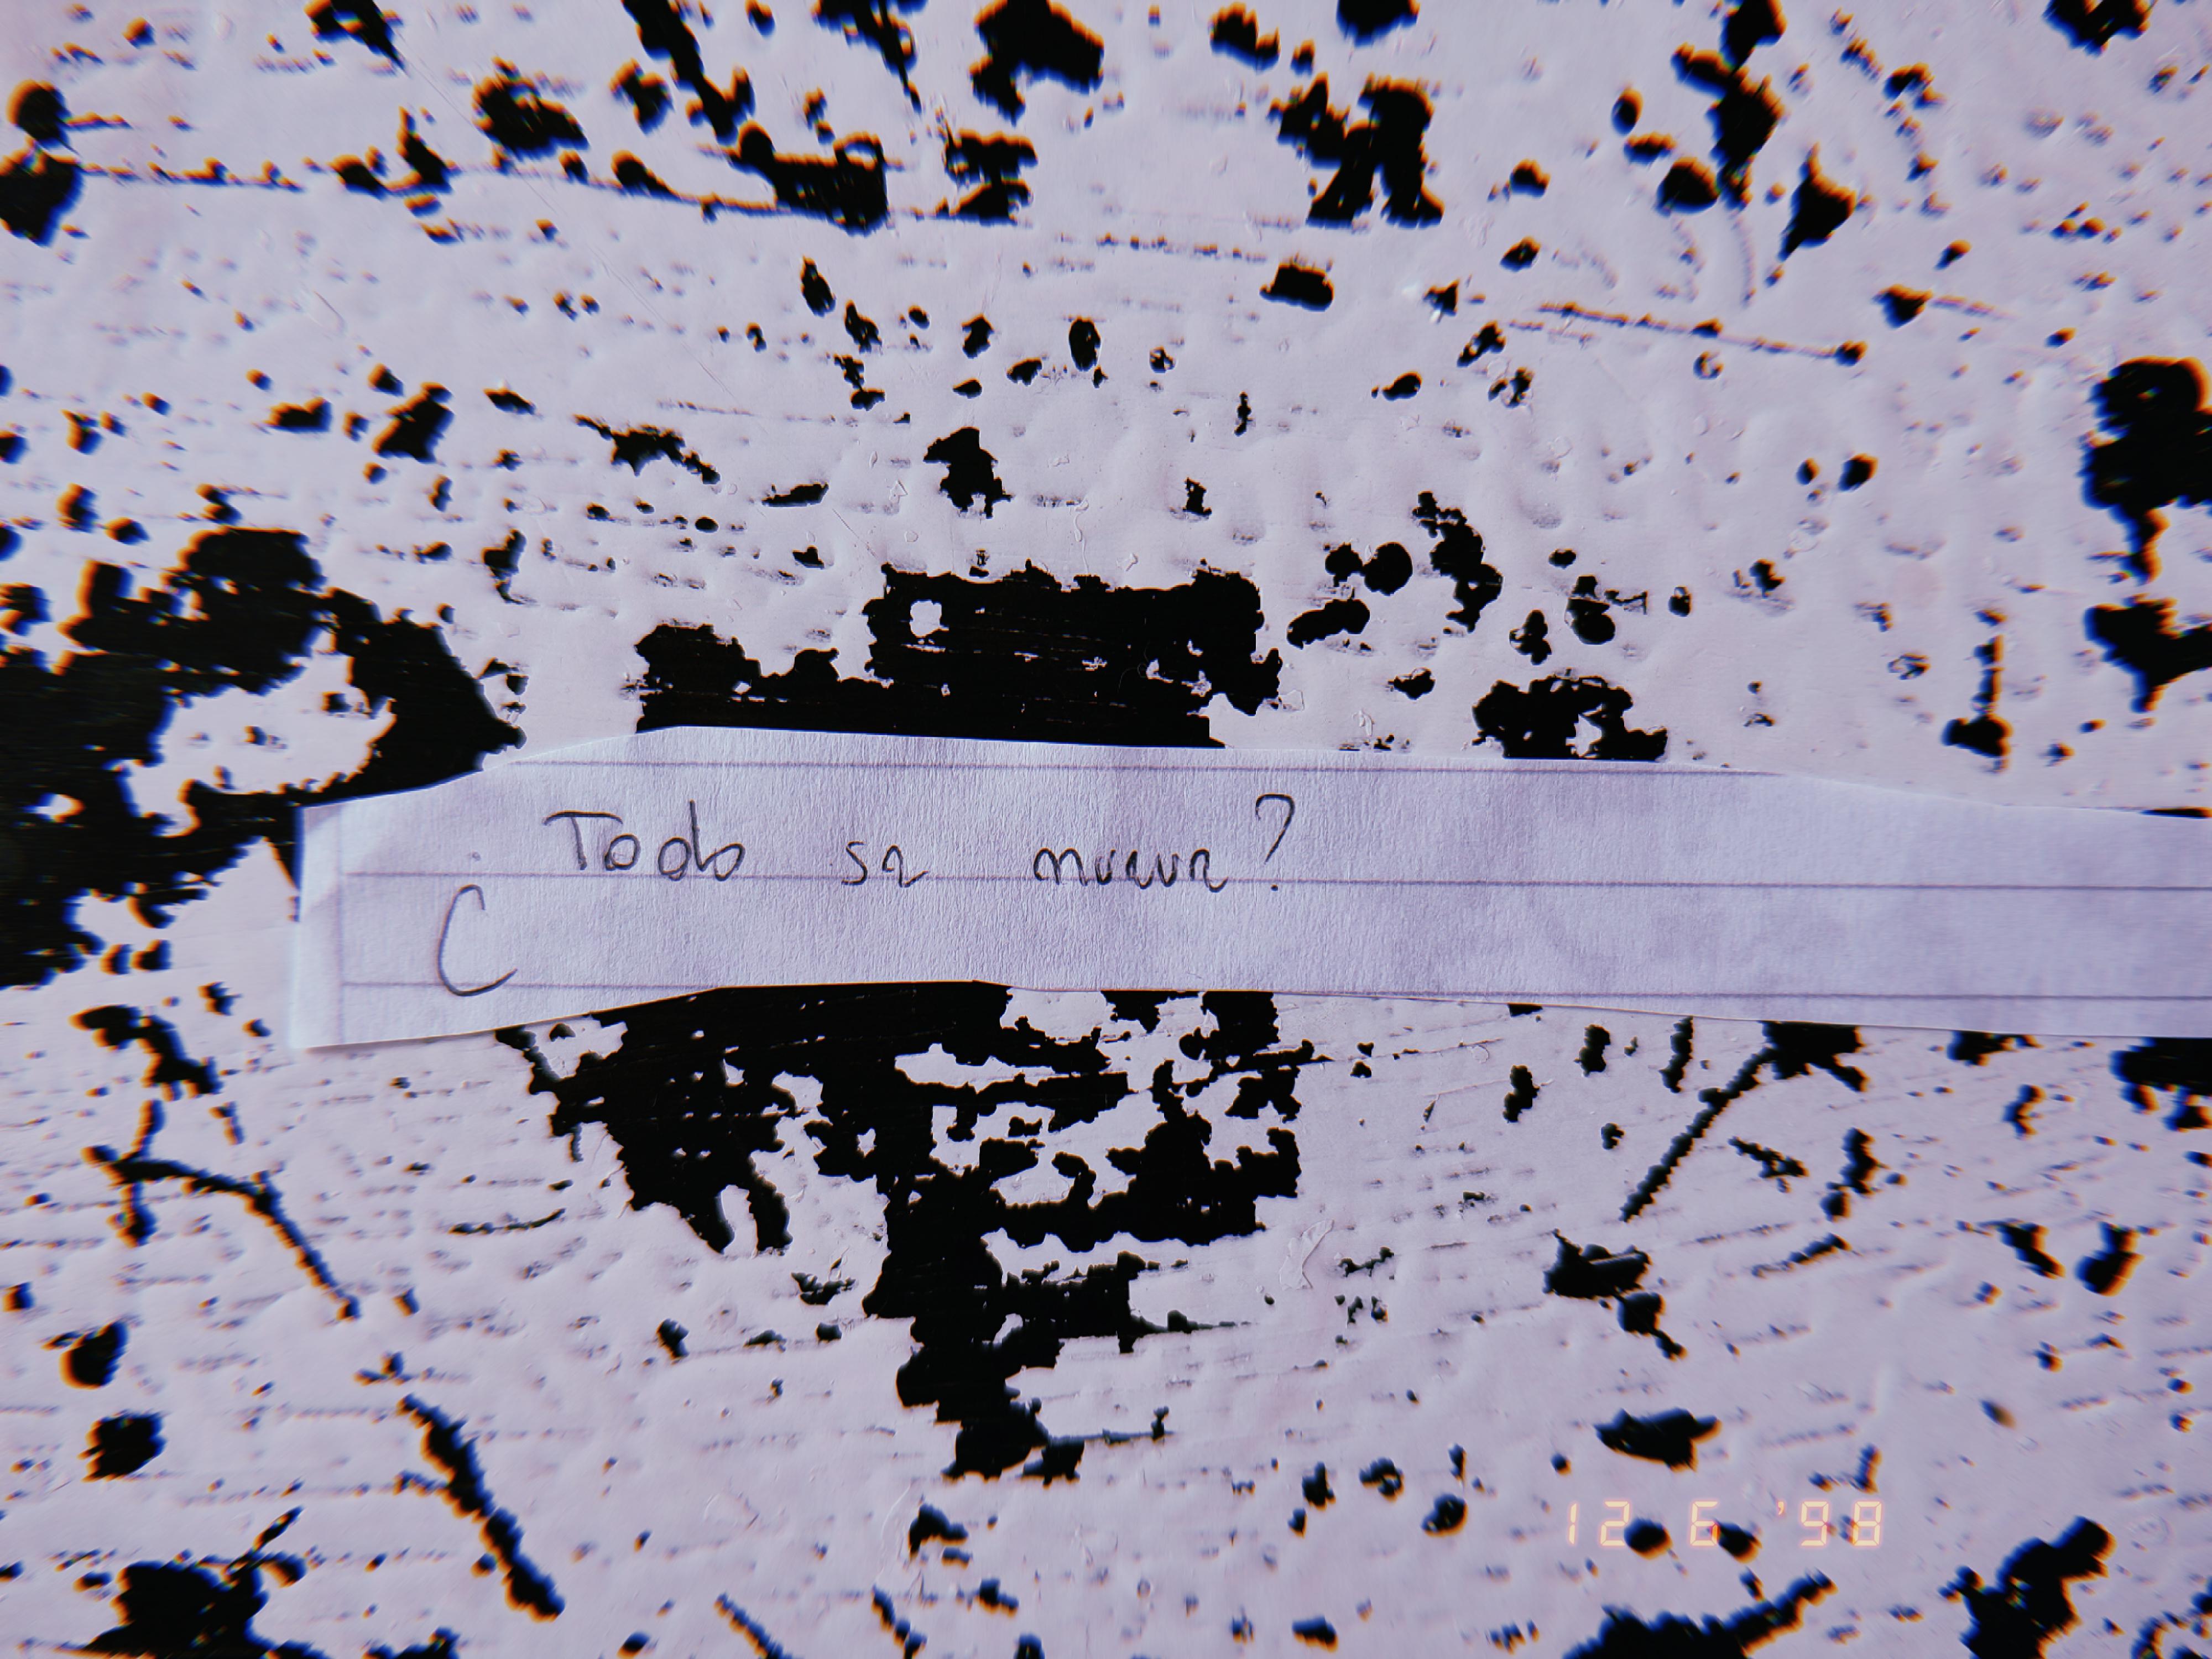 ¿Todo se mueve?
12 6 '98